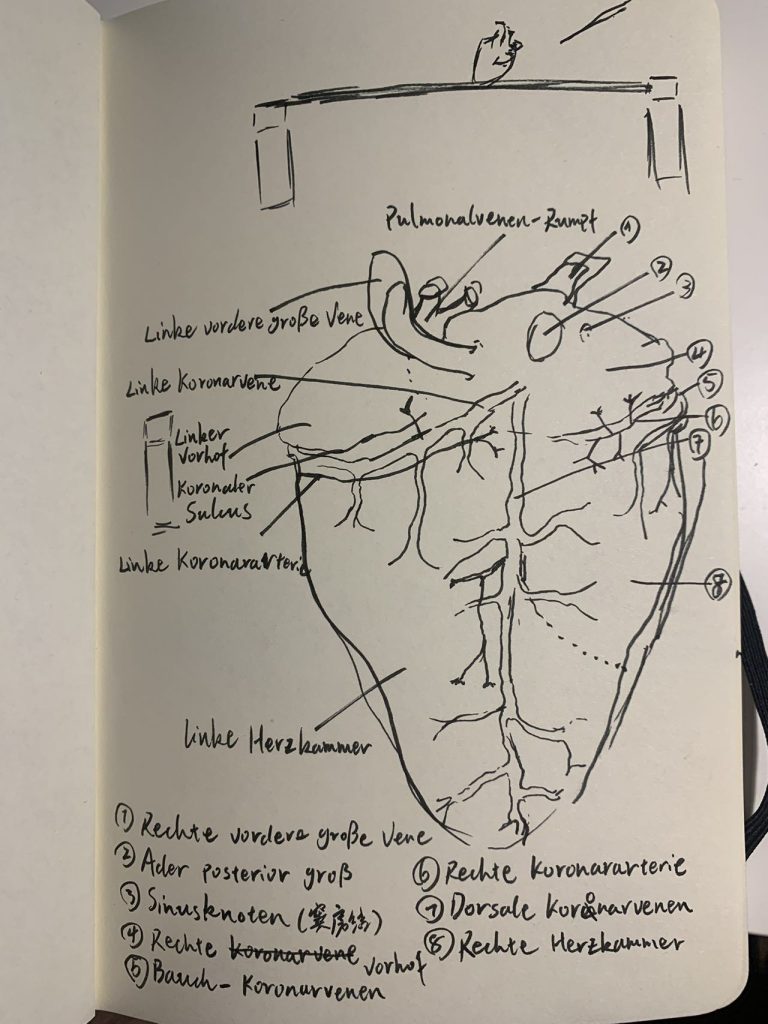 Pulmonalvenen-Rumpf
①
②
③
Linke vordere große Vene
④
Linke Koronarvene
⑤
⑥
Linker
Vorhof
⑦
Koronaler
Sulcus
Linke Koronararterie
⑧
Linke Herzkammer
① Rechte vordere große Vene
② Ader posterior groß
③ Sinusknoten (窦房结)
④ Rechte Koronarvene Vorhof
⑤ Bauch-Koronarvenen
⑥ Rechte Koronararterie
⑦ Dorsale Koronarvenen
⑧ Rechte Herzkammer